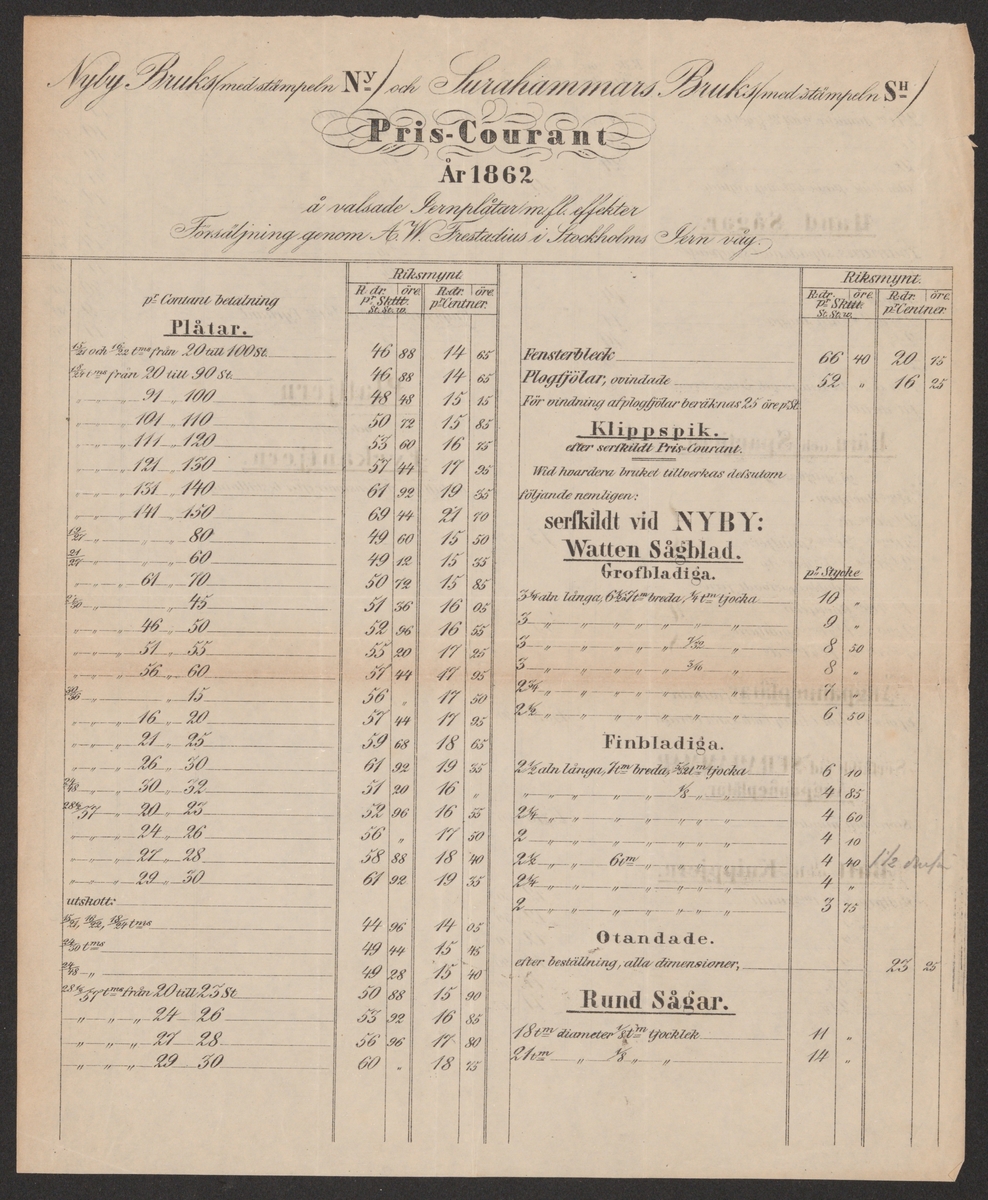 Nyby Bruks (med stämpeln Ny) och Surahammars Bruks (med stämpeln SH)
Pris-Courant
År 1862
å valsade Jernplåtar m. fl. effekter
Försäljning genom A. W. Frestadius i Stockholms Jern våg.
Riksmynt
pr Contant betalning R.dr. öre. R.dr. öre.
pr Sk℔tt. pr Centner.
St. St. w.
Plåtar.
15/21 och 16/22 tms från 20 till 100 St. 46 88 14 65
18/24 tms från 20 till 90 St. 46 88 14 65
„ „ „ 91 „ 100 48 48 15 15
„ „ „ 101 „ 110 50 72 15 85
„ „ „ 111 „ 120 53 60 16 75
„ „ „ 121 „ 130 57 44 17 95
„ „ „ 131 „ 140 61 92 19 35
„ „ „ 141 „ 150 69 44 21 70
„ „ „ 80 49 60 15 50
21/27 „ „ 60 49 12 15 35
„ „ „ 61 „ 70 50 72 15 85
„ „ 45 51 36 16 05
„ „ „ 46 „ 50 52 96 16 55
„ „ „ 51 „ 55 55 20 17 25
„ „ „ 56 „ 60 57 44 17 95
„ „ „ 15 56 „ 17 50
„ „ „ 16 „ 20 57 44 17 95
„ „ „ 21 „ 25 59 68 18 65
„ „ „ 26 „ 30 61 92 19 35
24/48 „ „ 30 „ 32 51 20 16 „
28½/57 „ „ 20 „ 23 52 96 16 55
„ „ „ 24 „ 26 56 „ 17 50
„ „ „ 27 „ 28 58 88 18 40
„ „ „ 29 „ 30 61 92 19 35
utskott:
15/21, 16/22, 18/24 tms 44 96 14 05
tms 49 44 15 45
24/48 „ 49 28 15 40
28½/57 tms från 20 till 23 St 50 88 15 90
„ „ „ „ 24 „ 26 53 92 16 85
„ „ „ „ 27 „ 28 56 96 17 80
„ „ „ „ 29 „ 30 60 „ 18 75
Riksmynt.
R.dr. öre. R.dr. öre.
pr Sk℔tt. pr Centner
St. St. w.
Fensterbleck 66 40 20 75
Plogfjölar, ovindade 52 „ 16 25
För vindning af plogfjölar beräknas 25 öre pr St.
Klippspik.
efter serskildt Pris-Courant.
Wid hvardera bruket tillverkas dessutom
följande nemligen:
serskildt vid NYBY:
Watten Sågblad.
Grofbladiga. pr Stycke
3¼ aln långa, tm breda, ¼ tm tjocka 10 „
3 „ „ „ „ „ „ „ 9 „
3 „ „ „ „ 7/32 „ „ 8 50
3 „ „ „ „ 3/16 „ „ 8 „
2¾ „ „ „ „ „ „ „ 7 „
2½ „ „ „ „ „ „ „ 6 50
Finbladiga.
2½ aln långa, 7 tm breda, 5/32 tm tjocka 6 10
„ „ „ „ „ ⅛ „ „ 4 85
2¼ „ „ „ „ „ „ „ 4 60
2 „ „ „ „ „ „ „ 4 10
2½ „ „ 6 tm „ „ „ „ 4 40
2¼ „ „ „ „ „ „ „ 4 „
2 „ „ „ „ „ „ „ 3 75
Otandade.
efter beställning, alla dimensioner, 23 25
Rund Sågar.
18 tm diameter ⅛ tm tjocklek 11 „
21 tm „ ⅛ „ „ 14 „